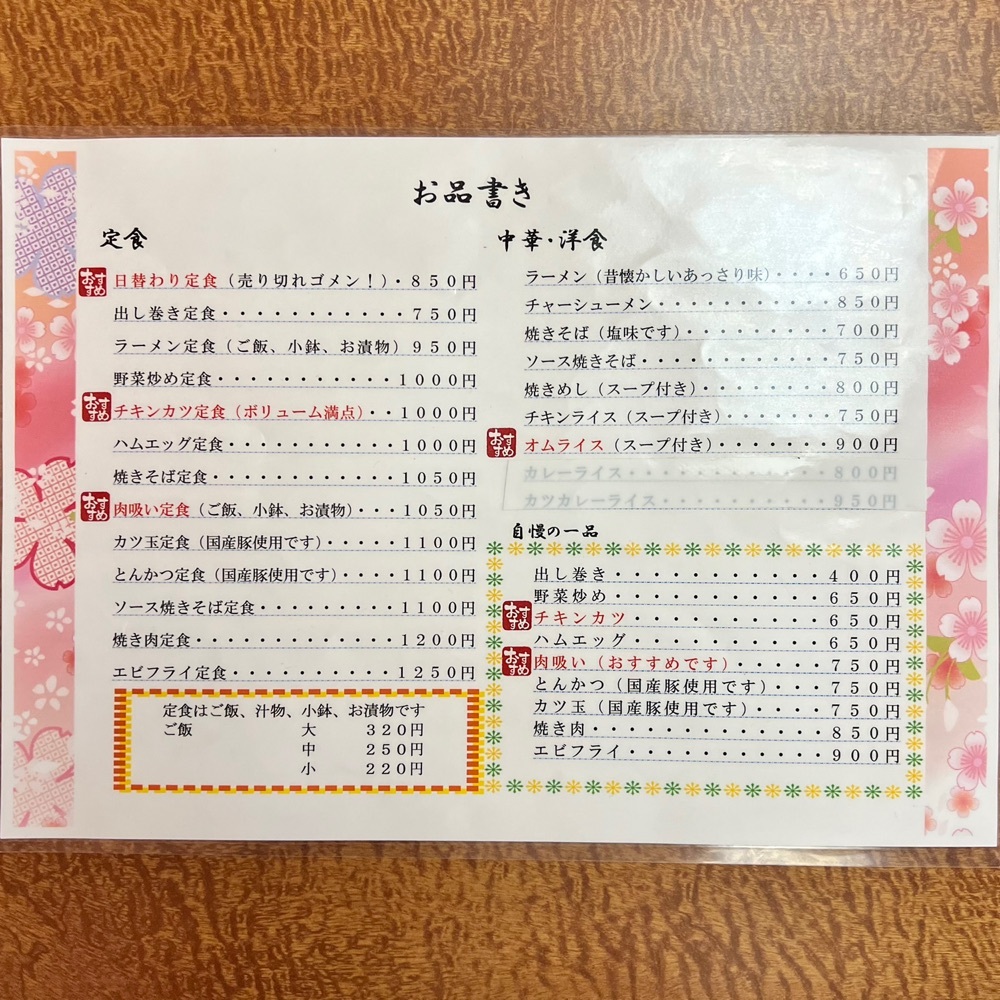 お品書き
定食
おすすめ 日替わり定食（売り切れゴメン！）・８５０円
出し巻き定食・・・・・・・・・・・７５０円
ラーメン定食（ご飯、小鉢、お漬物）９５０円
野菜炒め定食・・・・・・・・・・１０００円
おすすめ チキンカツ定食（ボリューム満点）・・１０００円
ハムエッグ定食・・・・・・・・・１０００円
焼きそば定食・・・・・・・・・・１０５０円
おすすめ 肉吸い定食（ご飯、小鉢、お漬物）・・・１０５０円
カツ玉定食（国産豚使用です）・・・・１１００円
とんかつ定食（国産豚使用です）・・・・１１００円
ソース焼きそば定食・・・・・・・・１１００円
焼き肉定食・・・・・・・・・・・１２００円
エビフライ定食・・・・・・・・・１２５０円
定食はご飯、汁物、小鉢、お漬物です
ご飯 大 ３２０円
中 ２５０円
小 ２２０円
中華・洋食
ラーメン（昔懐かしいあっさり味）・・・・６５０円
チャーシューメン・・・・・・・・・・・８５０円
焼きそば（塩味です）・・・・・・・・・７００円
ソース焼きそば・・・・・・・・・・・・７５０円
焼きめし（スープ付き）・・・・・・・・８００円
チキンライス（スープ付き）・・・・・・・７５０円
おすすめ オムライス（スープ付き）・・・・・・・９００円
カレーライス・・・・・・・・・・・・８００円
カツカレーライス・・・・・・・・・・９５０円
自慢の一品
出し巻き・・・・・・・・・・・・４００円
野菜炒め・・・・・・・・・・・・６５０円
おすすめ チキンカツ・・・・・・・・・・・６５０円
ハムエッグ・・・・・・・・・・・６５０円
おすすめ 肉吸い（おすすめです）・・・・・７５０円
とんかつ（国産豚使用です）・・・７５０円
カツ玉（国産豚使用です）・・・・７５０円
焼き肉・・・・・・・・・・・・・８５０円
エビフライ・・・・・・・・・・・９００円